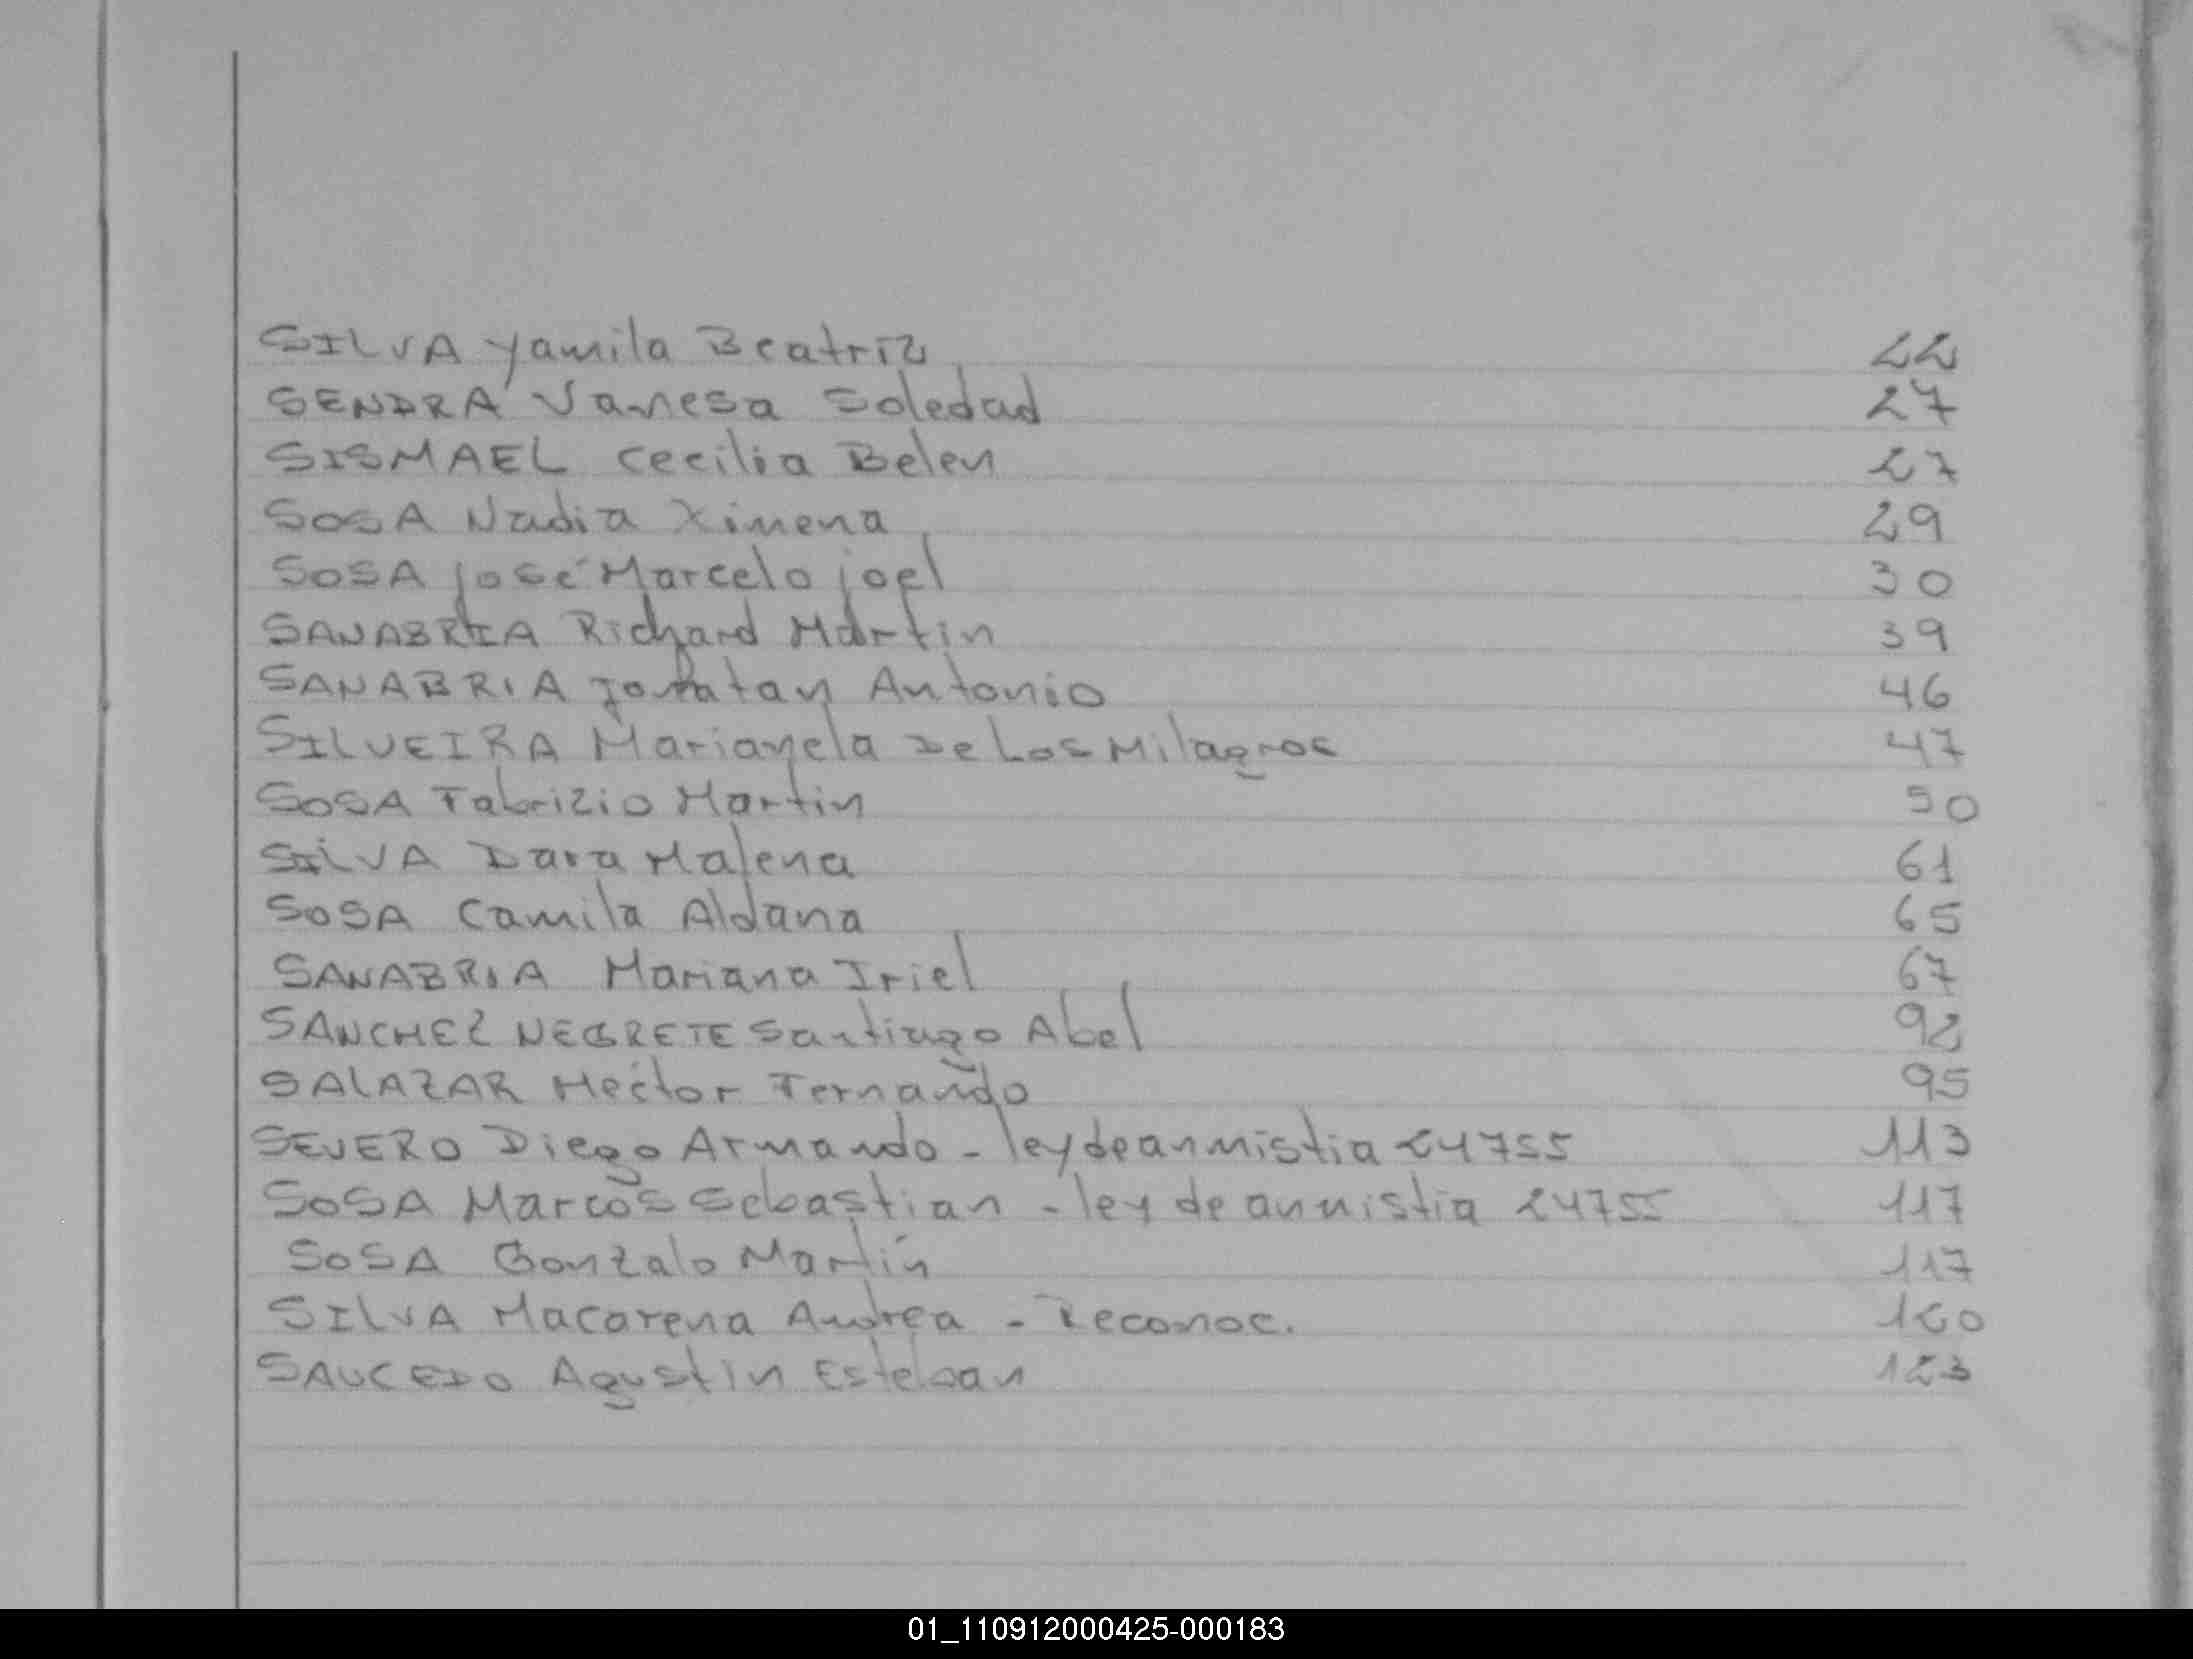 SILVA Yamila Beatriz 22
SENDRA Vanesa Soledad 27
SISMAEL Cecilia Belen 27
SOSA Nadia Ximena 29
SOSA José Marcelo joel 30
SANABRIA Richard Martin 39
SANABRIA Jonatan Antonio 46
SILVEIRA Marianela De Los Milagros 47
SOSA Fabrizio Martin 50
SILVA Dara Malena 61
SOSA Camila Aldana 65
SANABRIA Mariana Iriel 67
SANCHEZ NEGRETE Santiago Abel 92
SALAZAR Hector Fernando 95
SEVERO Diego Armando - ley de anmistia 24755 113
SOSA Marcos Sebastian - ley de anmistia 24755 117
SOSA Gonzalo Martín 117
SILVA Macarena Andrea - Reconoc. 120
SAUCEDO Agustin Esteban 123
01_110912000425-000183